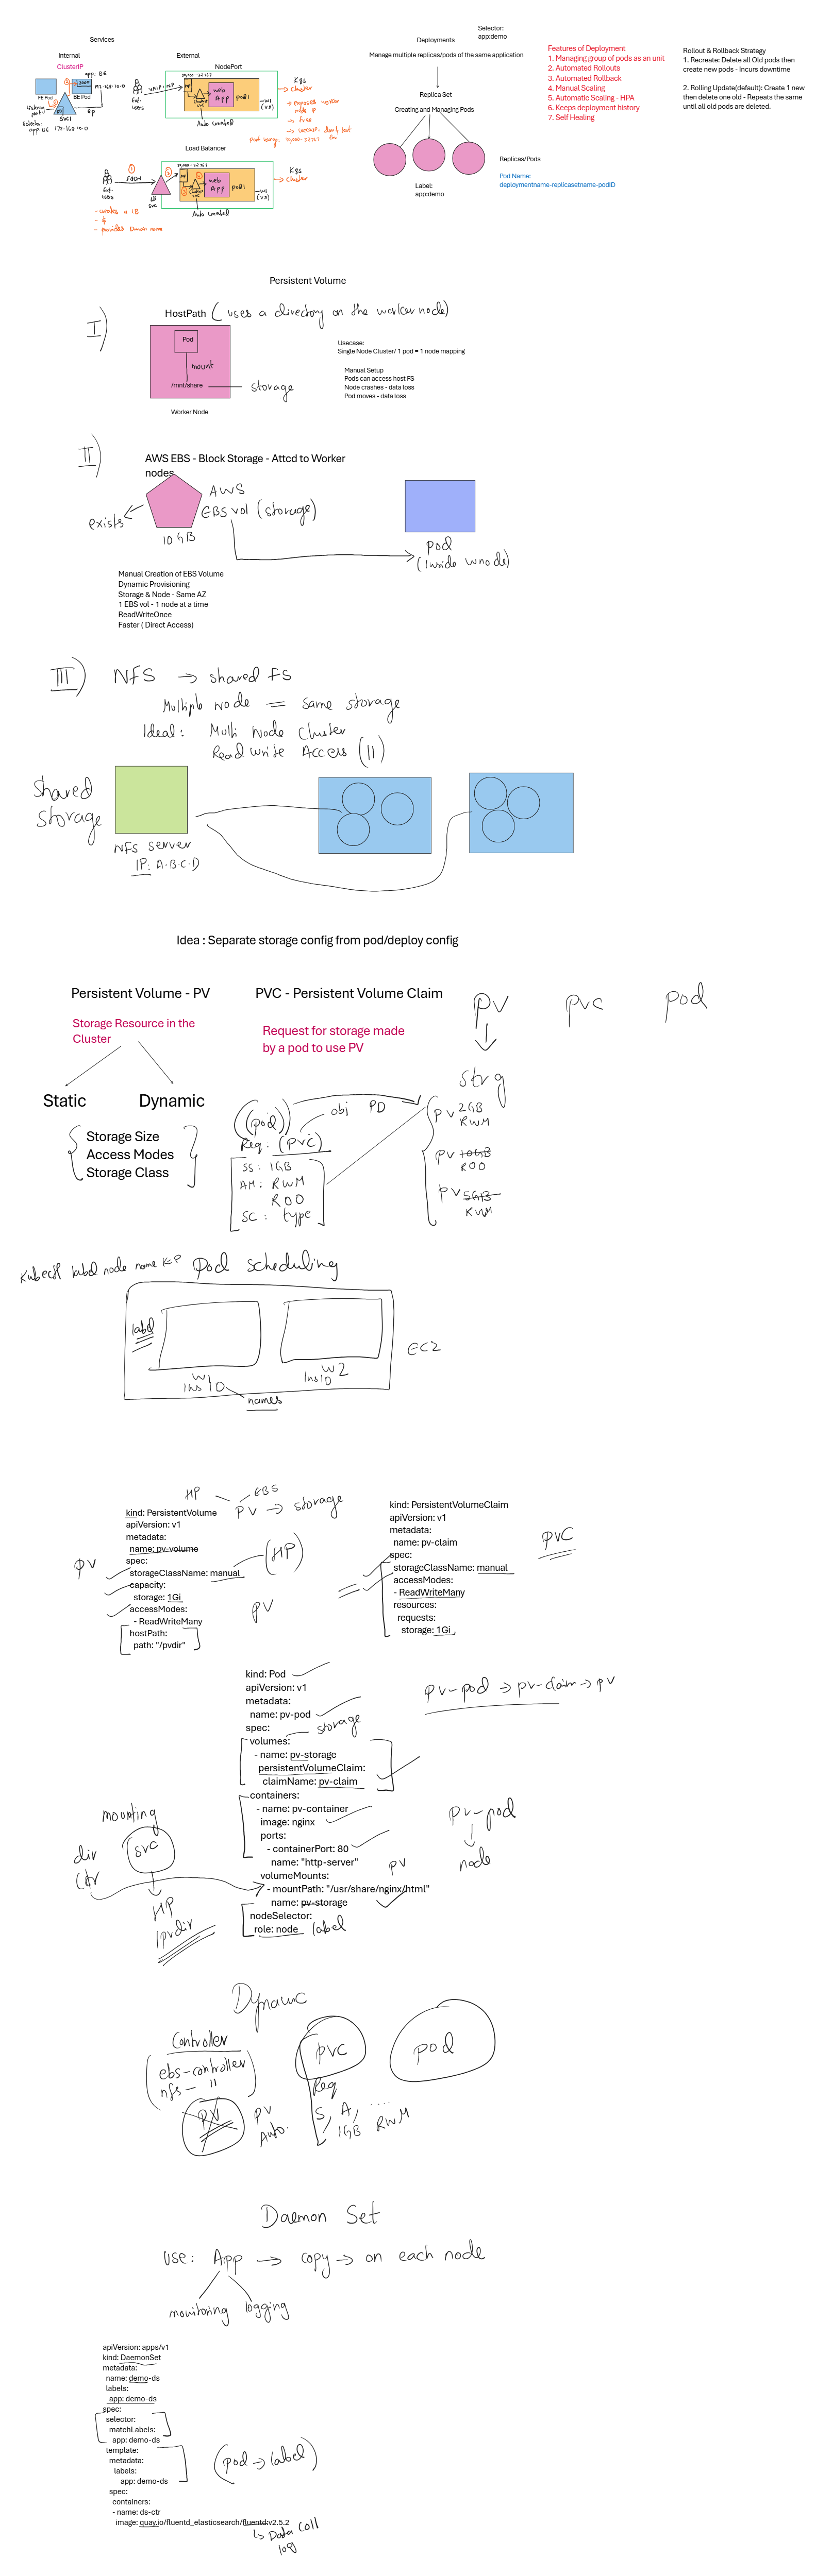 Services
Internal
External
ClusterIP
NodePort
app: BE
FE Pod
BE Pod
svc1
ep
Selector:
app:BE
172-168-10-0
Ext-
users
web
App
pod1
Auto created
K8s
Cluster
→ free
Load Balancer
Ext-
users
LB
svc
web
App
pod1
Auto created
K8s
cluster
- creates a LB
- provides Domain name
Selector:
app:demo
Deployments
Manage multiple replicas/pods of the same application
Replica Set
Creating and Managing Pods
Replicas/Pods
Label:
app:demo
Pod Name:
deploymentname-replicasetname-podID
Features of Deployment
1. Managing group of pods as an unit
2. Automated Rollouts
3. Automated Rollback
4. Manual Scaling
5. Automatic Scaling - HPA
6. Keeps deployment history
7. Self Healing
Rollout & Rollback Strategy
1. Recreate: Delete all Old pods then
create new pods - Incurs downtime
2. Rolling Update(default): Create 1 new
then delete one old - Repeats the same
until all old pods are deleted.
Persistent Volume
I)
HostPath ( uses a directory on the worker node)
Pod
mount
/mnt/share
storage
Worker Node
Usecase:
Single Node Cluster/ 1 pod = 1 node mapping
Manual Setup
Pods can access host FS
Node crashes - data loss
Pod moves - data loss
II)
AWS EBS - Block Storage - Attcd to Worker
nodes
exists
AWS
EBS vol (storage)
10 GB
pod
(inside wnode)
Manual Creation of EBS Volume
Dynamic Provisioning
Storage & Node - Same AZ
1 EBS vol - 1 node at a time
ReadWriteOnce
Faster ( Direct Access)
III)
NFS → shared FS
Multiple node = same storage
Ideal: Multi Node Cluster
Read write Access (11)
Shared
storage
NFS server
IP: A.B.C.D
Idea : Separate storage config from pod/deploy config
Persistent Volume - PV
PVC - Persistent Volume Claim
PV
pvc
pod
Storage Resource in the
Cluster
Request for storage made
by a pod to use PV
Static
Dynamic
Storage Size
Access Modes
Storage Class
strg
(pod)
obj PD
Req: (pvc)
SS: 1GB
AM: RWM
ROO
SC: type
PV 2GB
RWM
PV 10GB
ROO
PV 5GB
RWM
Kubectl label node name K=P
Pod scheduling
label
W
Ins ID
W2
Ins ID
names
EC2
HP
EBS
PV → storage
kind: PersistentVolume
apiVersion: v1
metadata:
name: pv-volume
spec:
storageClassName: manual
capacity:
storage: 1Gi
accessModes:
- ReadWriteMany
hostPath:
path: "/pvdir"
PV
(HP)
PV
kind: PersistentVolumeClaim
apiVersion: v1
metadata:
name: pv-claim
spec:
storageClassName: manual
accessModes:
- ReadWriteMany
resources:
requests:
storage: 1Gi
PVC
kind: Pod
apiVersion: v1
metadata:
name: pv-pod
spec:
volumes:
- name: pv-storage
persistentVolumeClaim:
claimName: pv-claim
containers:
- name: pv-container
image: nginx
ports:
- containerPort: 80
name: "http-server"
volumeMounts:
- mountPath: "/usr/share/nginx/html"
name: pv-storage
nodeSelector:
role: node
storage
PV
label
pv-pod → pv-claim → pv
pv-pod
node
mounting
svc
div
ctr
HP
/pvdir
Dynamic
Controller
ebs-controller
nfs- "
PV
PV
Auto.
pvc
Req
S, A, ....
1GB RWM
pod
Daemon Set
Use: App → copy → on each node
monitoring
logging
apiVersion: apps/v1
kind: DaemonSet
metadata:
name: demo-ds
labels:
app: demo-ds
spec:
selector:
matchLabels:
app: demo-ds
template:
metadata:
labels:
app: demo-ds
spec:
containers:
- name: ds-ctr
image: quay.io/fluentd_elasticsearch/fluentd:v2.5.2
(pod → label)
↳ Data coll
log